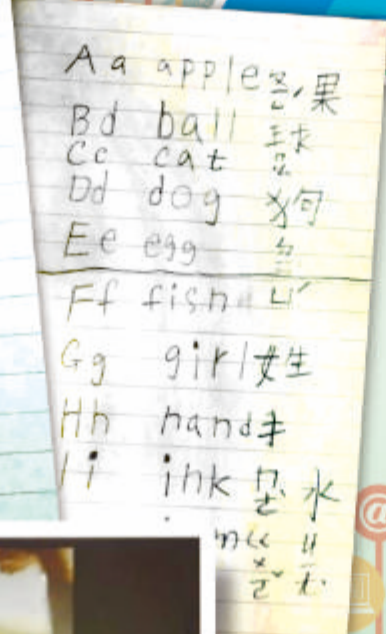 Aa apple 果
Bd ball 球
Cc cat
Dd dog 狗
Ee egg
Ff fish ㄩˊ
Gg girl 女生
Hh hand 手
Ii ink 水